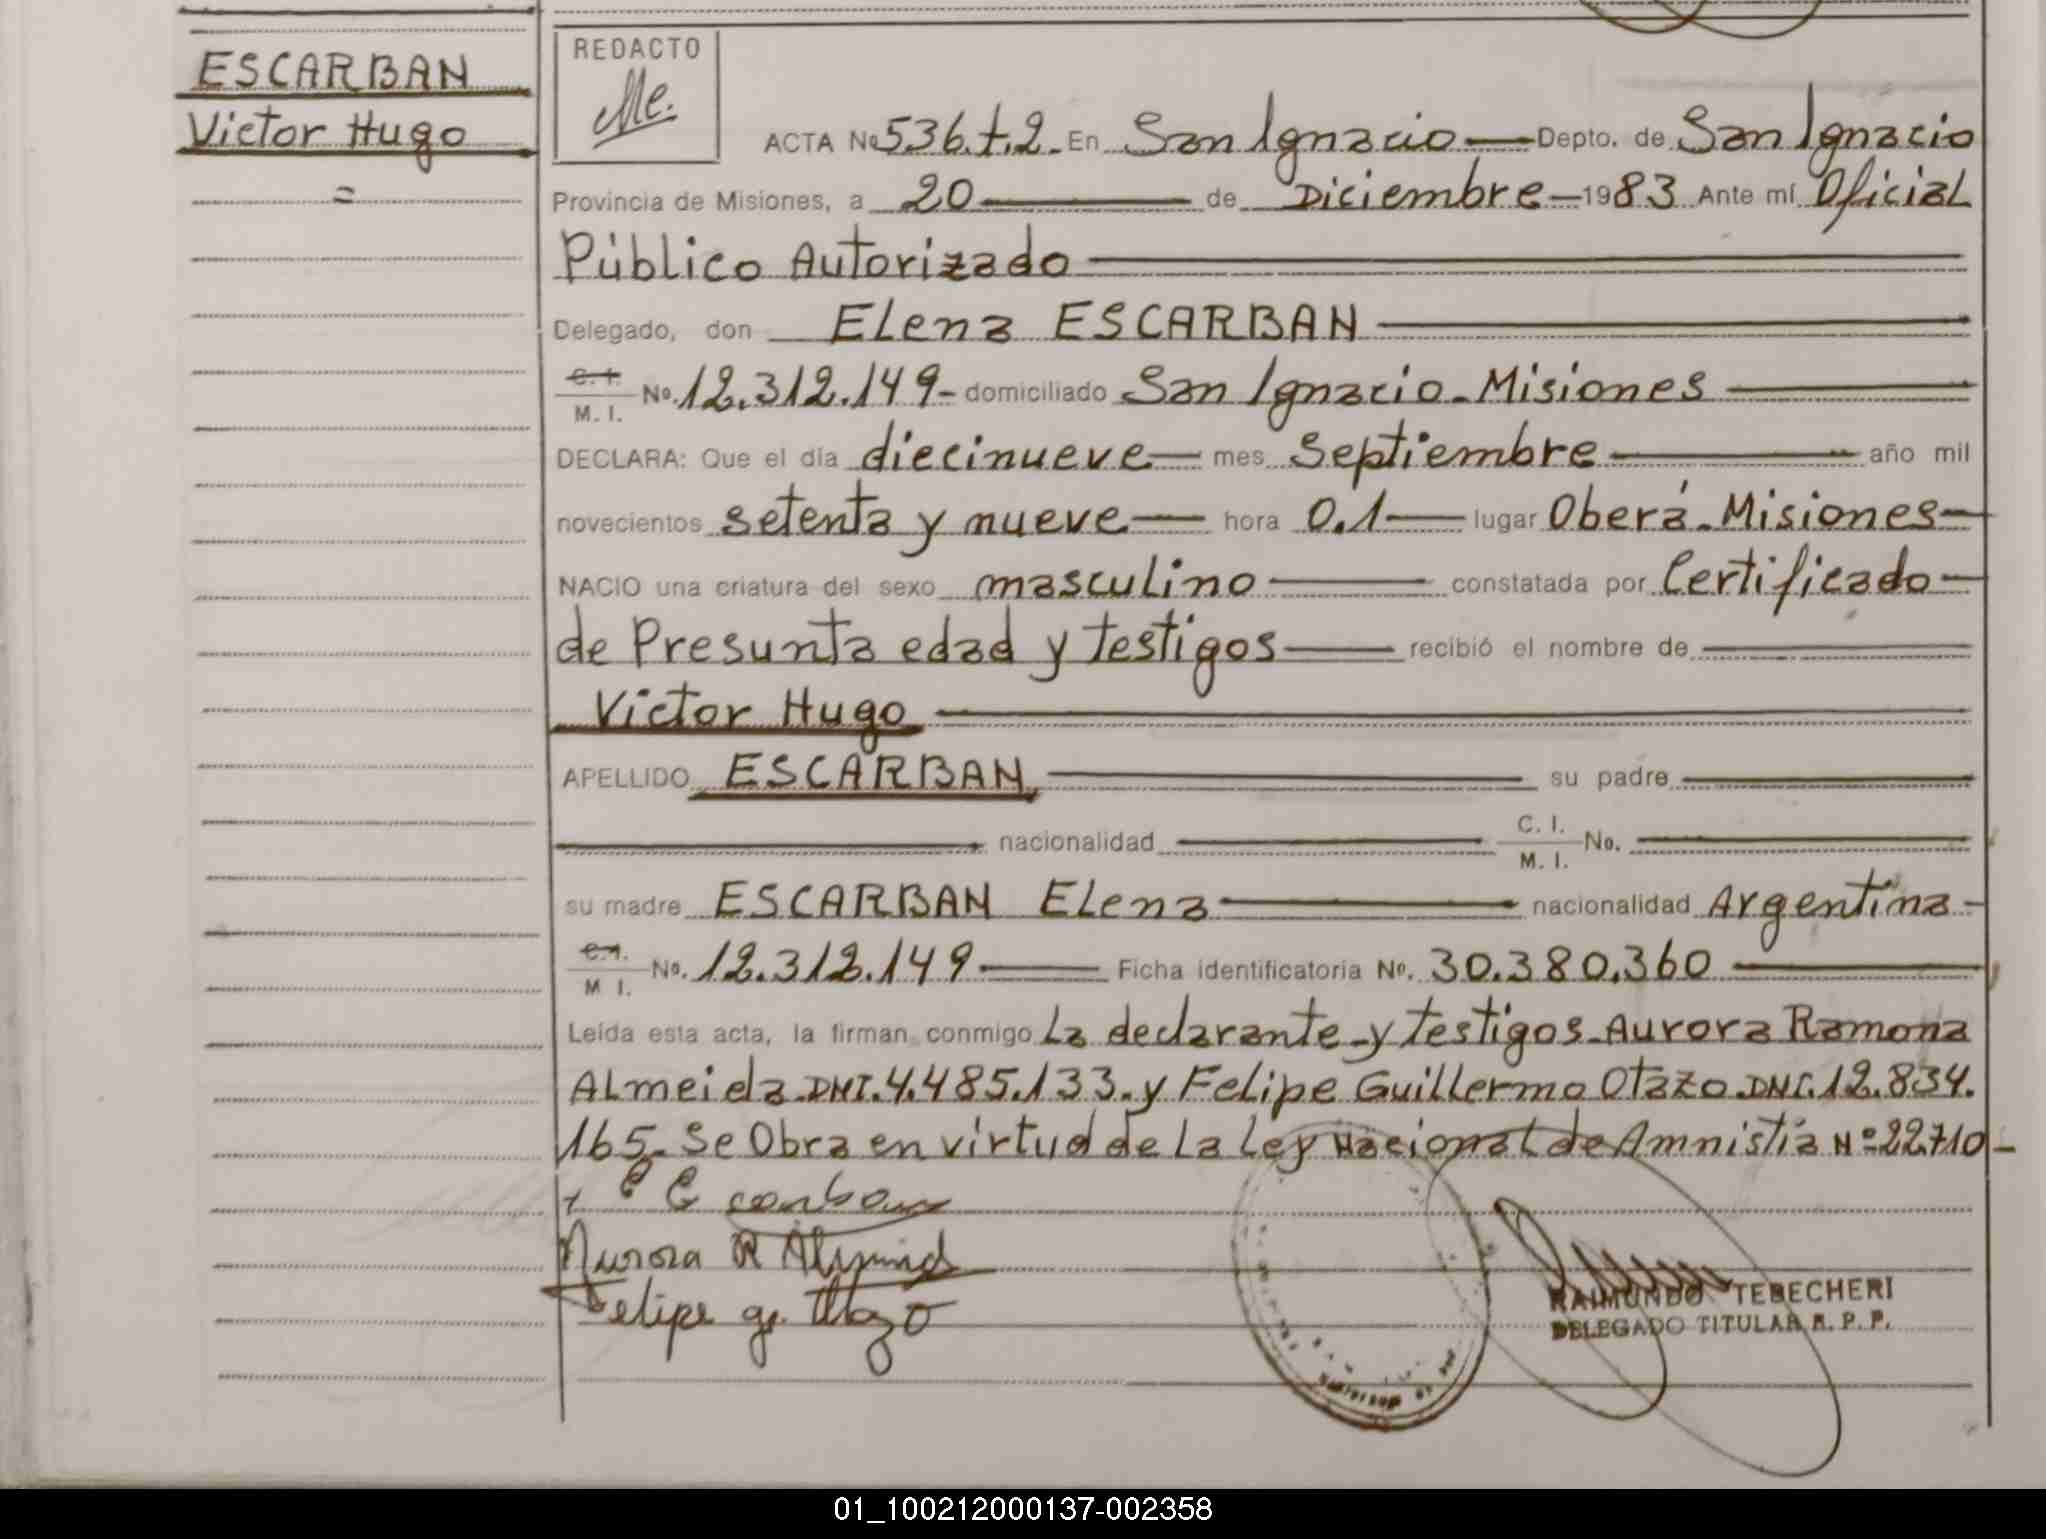 ESCARBAN
Victor Hugo
=
REDACTO
Me.
ACTA No 536.t.2. En San Ignacio Depto. de San Ignacio
Provincia de Misiones, a 20 de Diciembre 1983 Ante mí Oficial
Público Autorizado
Delegado, don Elena ESCARBAN
C. I.
M. I. No. 12.312.149 - domiciliado San Ignacio - Misiones
DECLARA: Que el día diecinueve mes Septiembre año mil
novecientos setenta y nueve hora 0.1 lugar Oberá - Misiones
NACIO una criatura del sexo masculino constatada por Certificado
de Presunta edad y testigos recibió el nombre de
Victor Hugo
APELLIDO ESCARBAN su padre
nacionalidad C. I.
M. I. No.
su madre ESCARBAN Elena nacionalidad Argentina
C. I.
M I. No. 12.312.149 Ficha identificatoria No. 30.380.360
Leída esta acta, la firman conmigo La declarante y testigos - Aurora Ramona
Almeida DNI. 4.485.133. y Felipe Guillermo Otazo DNI. 12.834.
165 - Se Obra en virtud de La Ley Nacional de Amnistia Nº 22710 -
Aurora R
Felipe g.
RAIMUNDO TEBECHERI
DELEGADO TITULAR R. P. P.
01_100212000137-002358